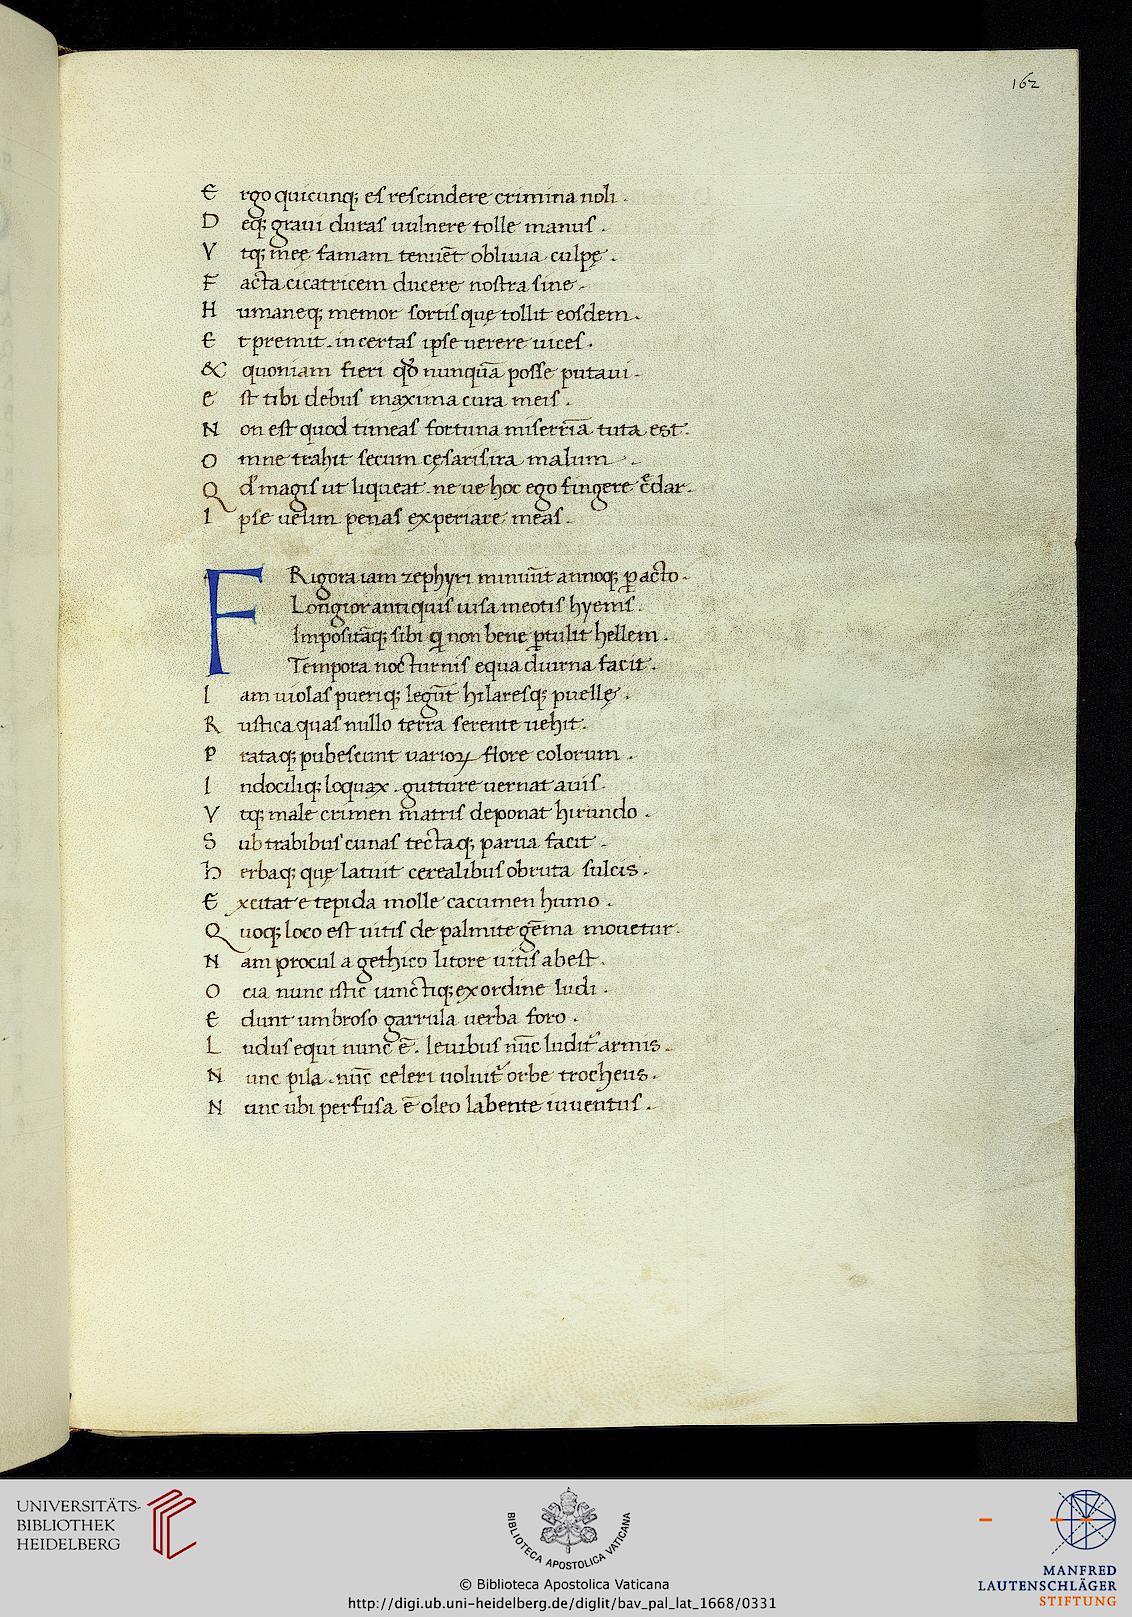 162
E rgo quicunq; es rescindere crimina noli .
D eq; graui duras uulnere tolle manus .
V tq; meę famam tenuēt obliuia culpę .
F acta cicatricem ducere nostra sine .
H umaneq; memor sortis quę tollit eosdem .
E t premit . incertas ipse uerere uices .
& quoniam fieri qđ nunquā posse putaui .
e st tibi debus maxima cura meis .
N on est quod timeas fortuna miserrīa tuta est .
O mne trahit secum cęsaris ira malum .
Q d' magis ut liqueat . ne ue hoc ego fingere c̄dar .
I pse uelim penas experiare meas .
F Rigora iam zephyri minuūt annoq; ꝑacto .
Longior antiquis uisa meotis hyems .
Impositāq; sibi q non bene ꝑtulit hellem .
Tempora nocturnis equa diurna facit .
I am uiolas pueriq; legūt hilaresq; puellę .
R ustica quas nullo terra serente uehit .
P rataq; pubescunt uarioꝝ flore colorum .
I ndociliq; loquax . gutture uernat auis .
V tq; male crimen matris deponat hirundo .
S ub trabibus cunas tectaq; parua facit .
H erbaq; quę latuit cerealibus obruta sulcis .
E xcitat e tepida molle cacumen humo .
Q uoq; loco est uitis de palmite gēma mouetur .
N am procul a gethico litore uitis abest .
O cia nunc istic iunctiq; ex ordine ludi .
E dunt umbroso garrula uerba foro .
L udus equi nunc ē . leuibus nūc ludit' armis .
N unc pila . nūc celeri uoluit' orbe trocheus .
N unc ubi perfusa ē oleo labente iuuentus .
UNIVERSITÄTS-
BIBLIOTHEK
HEIDELBERG
BIBLIOTECA APOSTOLICA VATICANA
MANFRED
LAUTENSCHLÄGER
STIFTUNG
© Biblioteca Apostolica Vaticana
http://digi.ub.uni-heidelberg.de/diglit/bav_pal_lat_1668/0331